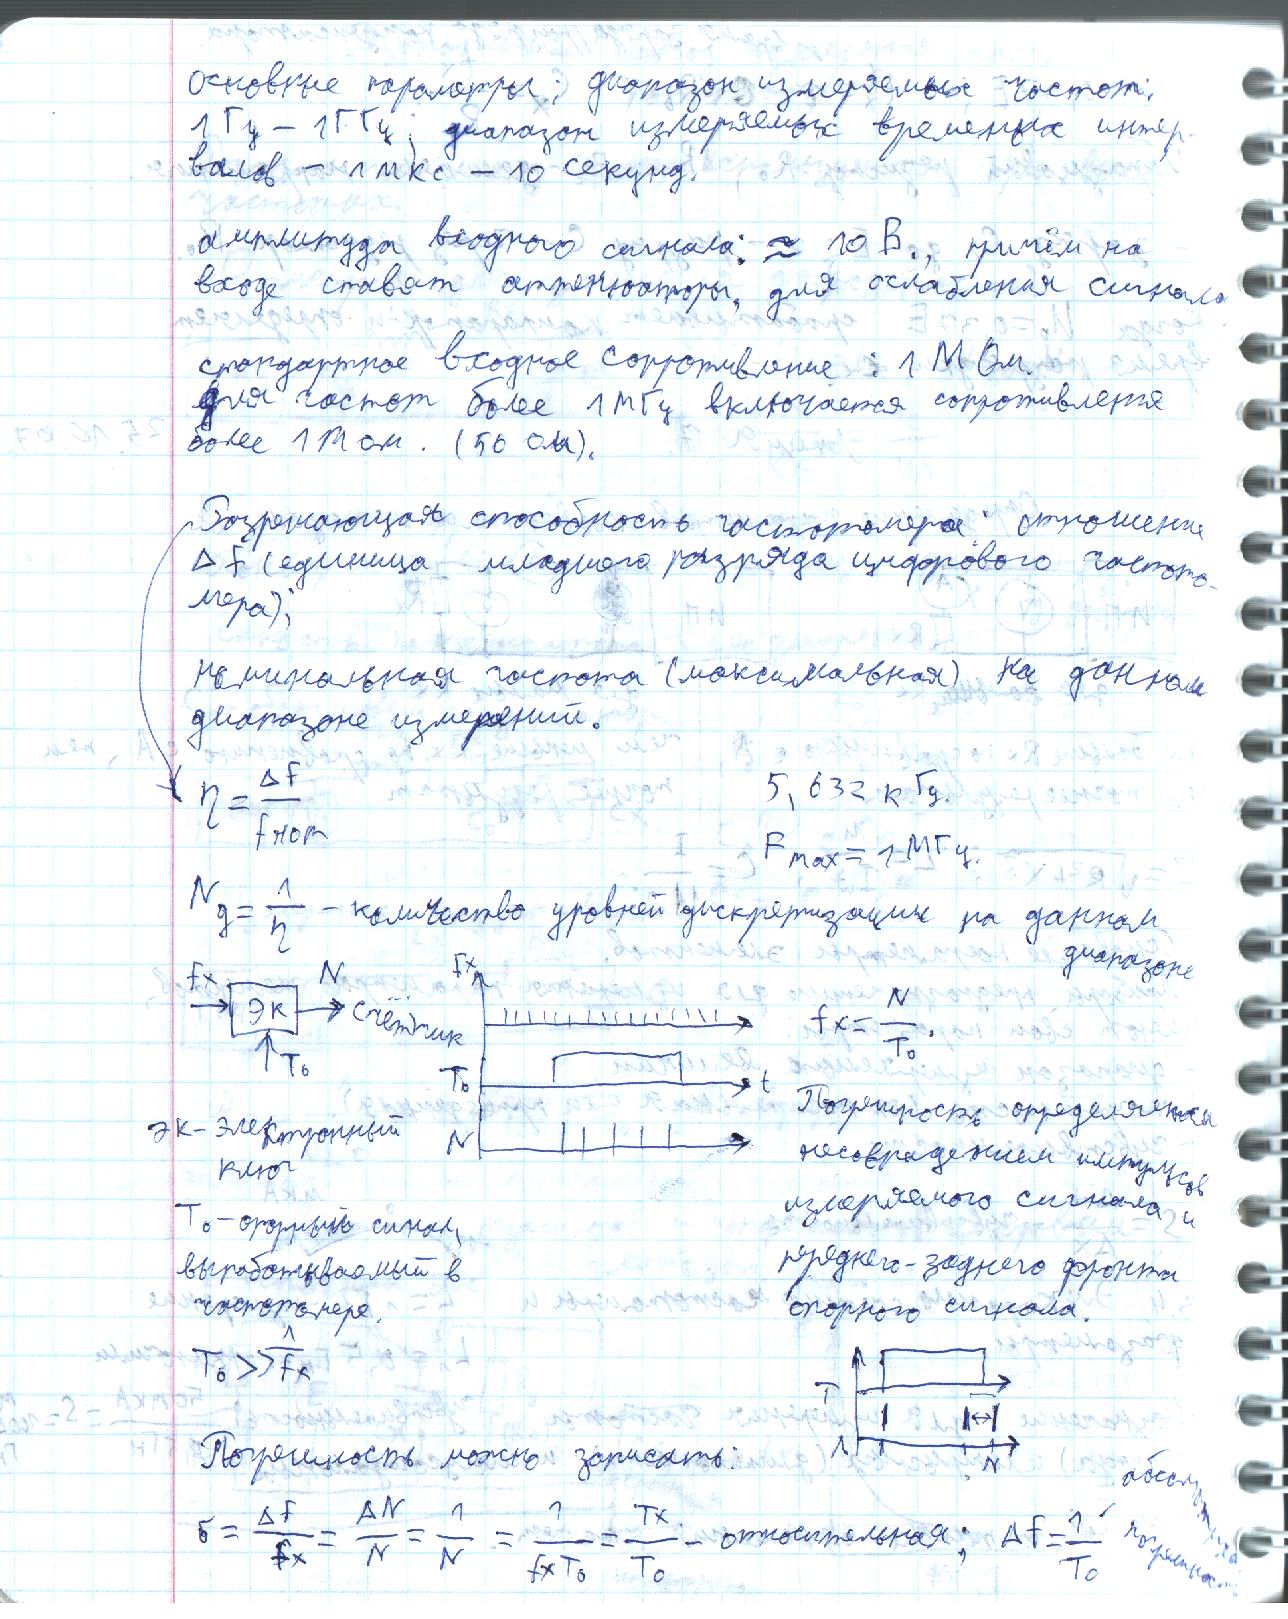 основные параметры: диапазон измеряемых частот:
1 Гц – 1 ГГц; диапазон измеряемых временных интер-
валов – 1 мкс – 10 секунд.
амплитуда входного сигнала: ≈ 10 В., причём на
входе ставят аттенюаторы, для ослабления сигнала
стандартное входное сопротивление: 1 МОм.
для частот более 1 МГц включается сопротивления
более 1 Мом. (50 Ом).
Разрешающая способность частотомера: отношение
Δf (единица младшего разряда цифрового частото-
мера);
номинальная частота (максимальная) на данном
диапазоне измерений.
η = Δf / fном
5,632 кГц.
Fmax = 1 МГц.
Nд = 1/η – количество уровней дискретизации на данном
диапазоне
fx ЭК N счётчик
T₀
fx
T₀ t
N
fx = N/T₀.
ЭК – электронный
ключ
T₀ – опорный сигнал,
вырабатываемый в
частотомере.
T₀ >> 1/fx
Погрешность определяется
несовпадением импульсов
измеряемого сигнала и
переднего-заднего фронта
опорного сигнала.
T
N
Погрешность можно записать:
δ = Δf/fx = ΔN/N = 1/N = 1/(fx T₀) = Tx/T₀ – относительная; Δf = 1/T₀
абсолютная
погрешность